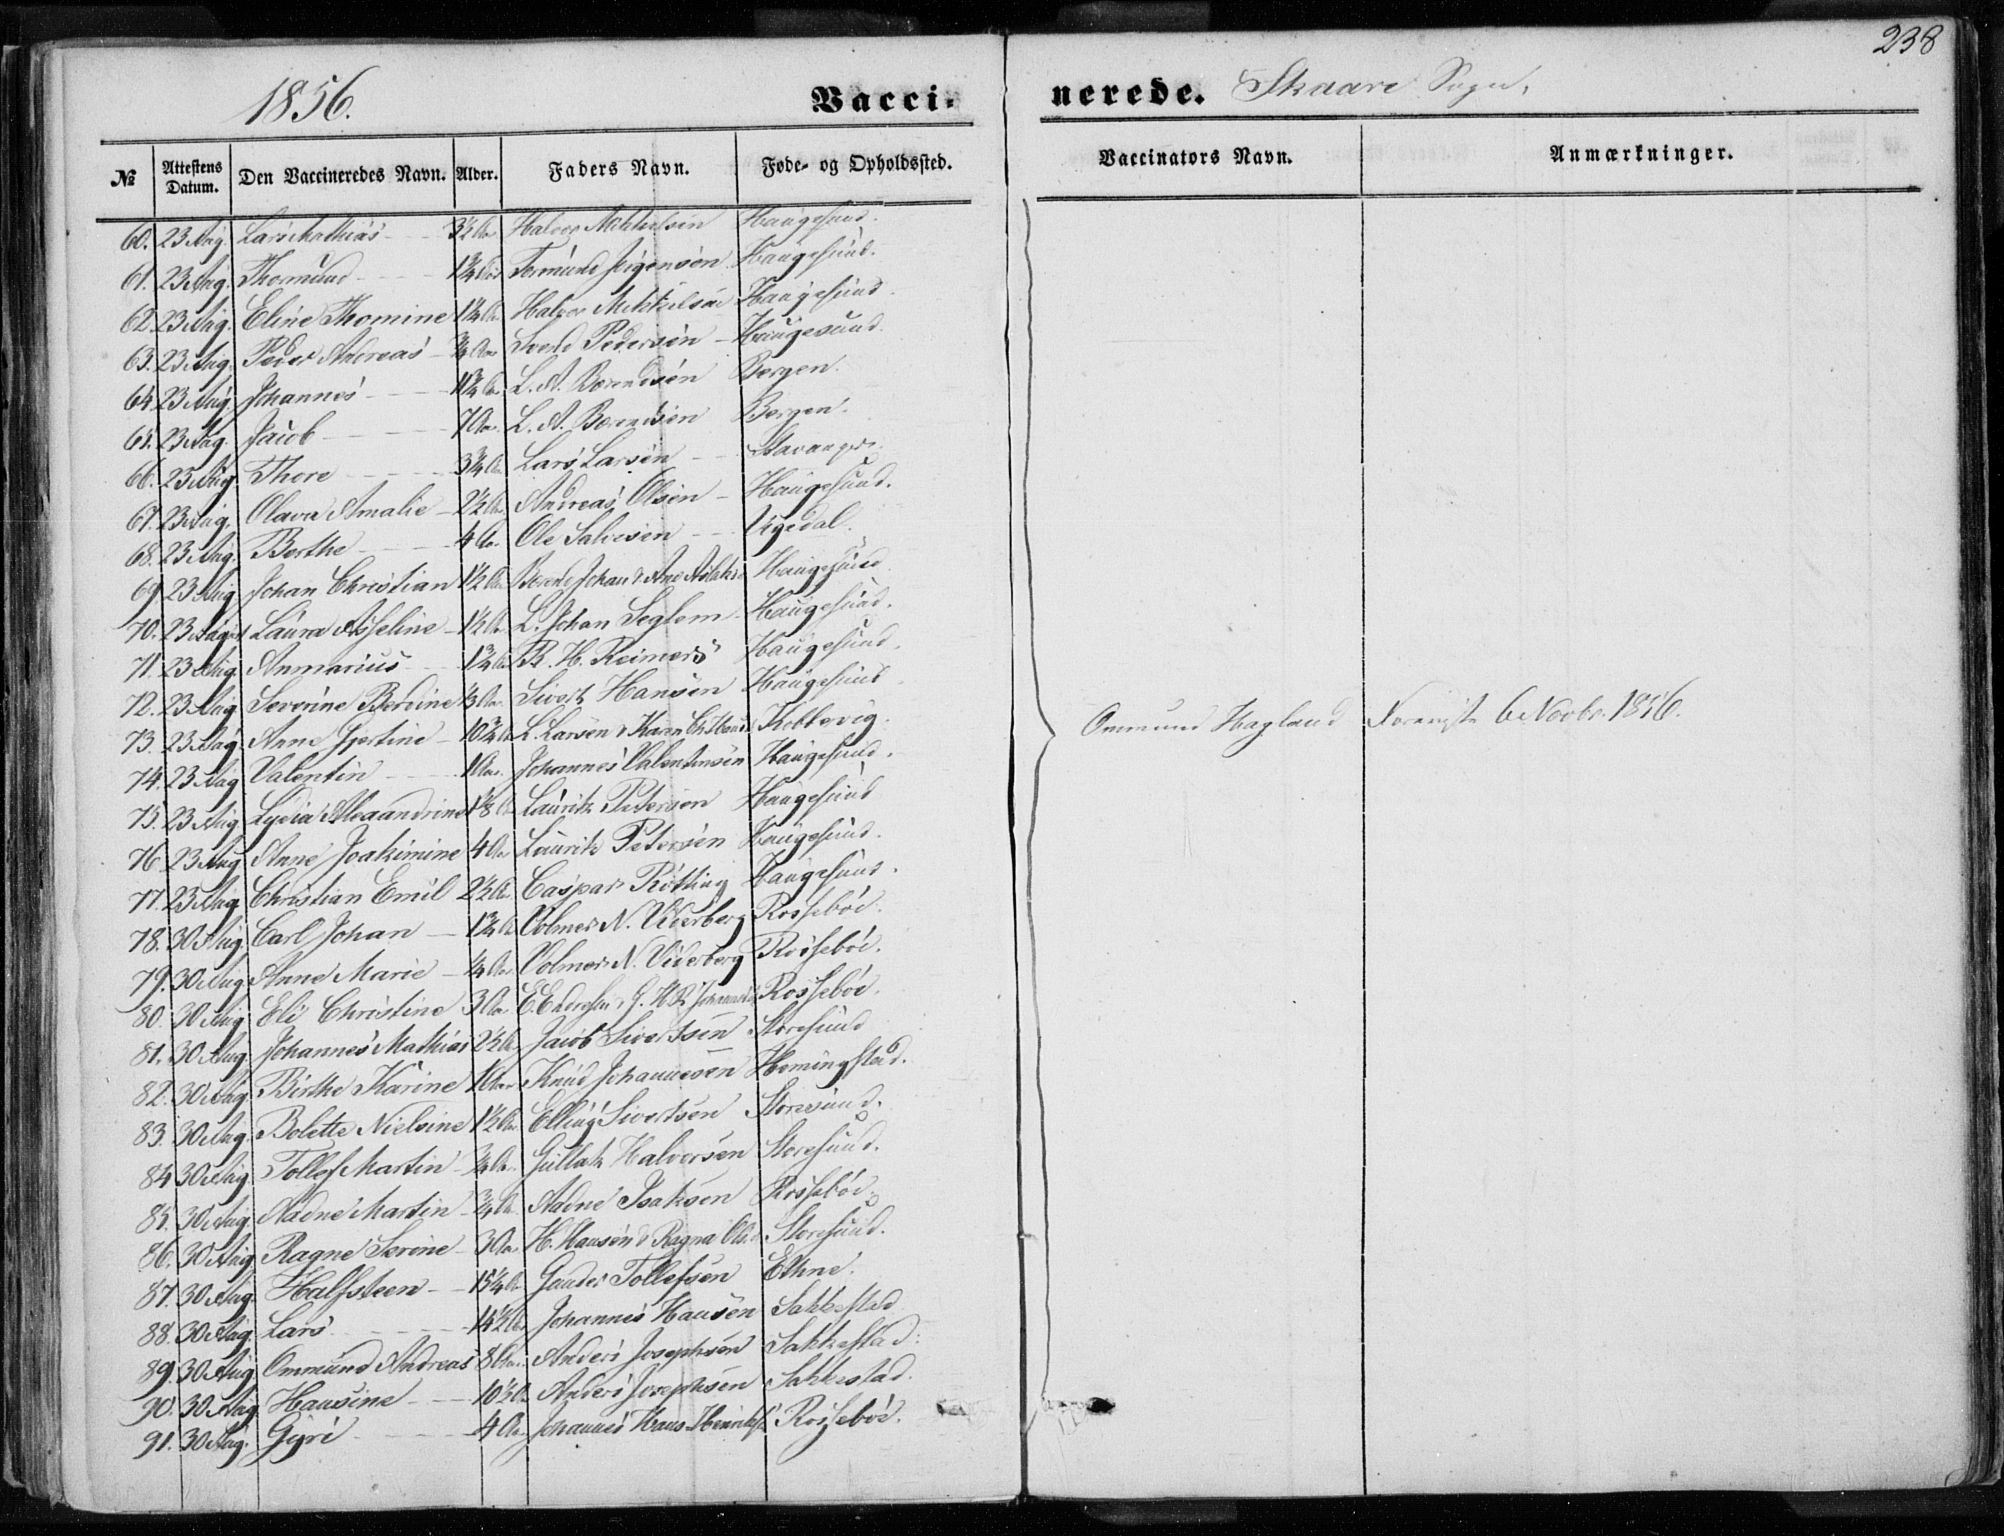 238
1856.
Vacci-
nerede. Skaare Sogn.
№ Attestens Datum. Den Vaccineredes Navn. Alder. Faders Navn. Føde- og Opholdssted. Vaccinators Navn. Anmærkninger.
60. 23 Aug. Lars Mathias 3½ Aar Halvor Mikkelsen Haugesund.
61. 23 Aug. Thormund 1¾ Aar Tormund Jørgensen Haugesund.
62. 23 Aug. Eline Thomine 1¼ Aar Halvor Mikkelsen Haugesund.
63. 23 Aug. Peder Andreas ¾ Aar Svend Pedersen Haugesund.
64. 23 Aug. Johannes Aar L. A. Berendsen Bergen.
65. 23 Aug. Jacob 7 Aar L. A. Berendsen Bergen.
66. 23 Aug. Thore 3¾ Aar Lars Larsen Stavanger
67. 23 Aug. Olava Amalie 2½ Aar Andreas Olsen Haugesund.
68. 23 Aug. Berthe 4 Aar Ole Salvesen
69. 23 Aug. Johan Christian 1½ Aar Berend Johan & Ane Haugesund
70. 23 August Laura Asseline 1½ Aar L. Johan Seglem Haugesund.
71. 23 Aug. Anmarius 1¾ Aar B. H. Reimers Haugesund.
72. 23 Aug. Severine Berdine Aar Sivert Hansen Haugesund
73. 23 Aug. Anne Gjertine 10¾ Aar L. Larsen & Karen Kobbevig.
74. 23 Aug. Valentin 1 Aar. Johannes Valentinsen Haugesund.
75. 23 Aug. Lydia Alexandrine Lauritz Petersen Haugesund
76. 23 Aug. Anne Joakimine 4 Aar Lauritz Petersen Haugesund.
77. 23 Aug. Christian Emil 2½ Aar Caspar Rötting Haugesund.
78. 30 Aug. Carl Johan 1¾ Aar Volmer N. Viderberg Rossebøe.
79. 30 Aug. Anne Marie ¼ Aar Volmer N. Viderberg Rossebøe.
80. 30 Aug. Eli Christine 3 Aar Rossebøe.
81. 30 Aug. Johannes Mathias 2½ Aar Jacob Sivertsen Storesund
82. 30 Aug. Birthe Karine 1 Aar Knud Johannesen Hemingstad.
83. 30 Aug. Bolette Nielsine 1½ Aar Elling Sivertsen Storesund.
84. 30 Aug. Tollef Martin ¾ Aar Gullak Halvorsen Storesund.
85. 30 Aug. Aadne Martin ¾ Aar Aadne Isaksen Rossebøe
86. 30 Aug. Ragne Serine 3 Aar H. Hansen & Ragna Storesund.
87. 30 Aug. Halfsteen 15¼ Aar Tollefsen Ethne.
88. 30 Aug. Lars 14½ Aar Johannes Hansen Sakkestad
89. 30 Aug. Ommund Andreas 8 Aar Anders Josephsen Sakkestad.
90. 30 Aug. Hansine 10½ Aar Anders Josephsen Sakkestad.
91. 30 Aug. Gyri 4 Aar Johannes Hans Rossebøe.
Ommund Hagland 6 Novbr. 1856.